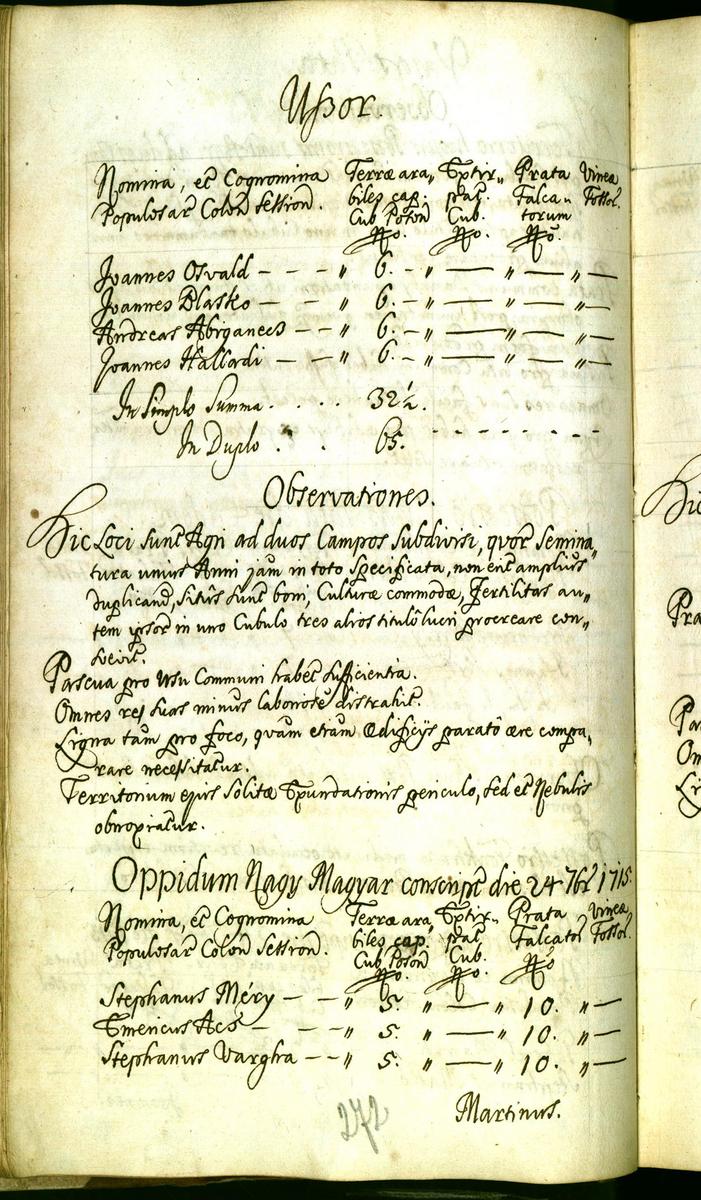 Ußor.
Nomina, et Cognomina Populosar Colon Session. Terræ ara„ biles cap. Cub Poson No. Extir„ pat. Cub. No. Prata Falca„ torum No. Vinea Fossor.
Joannes Osvald — — — „ 6. — „ — „ — „ —
Joannes Blasko — — „ 6. — „ — „ — „ —
Andreas Abrganecs — — „ 6. — „ — „ — „ —
Joannes Hallardi — — „ 6. — „ — „ — „ —
In Simplo Summa . . . . 32½.
In Duplo . . 65. - - - - - - -
Observationes.
Hic Loci sunt Agri ad duos Campos Subdivisi, quor Semina„
tura unius Anni jam in toto Specificata, non erit amplius
Duplicand, Situs sunt boni, Culturæ commodæ, Fertilitas au„
tem ipsor in uno Cubulo tres alios titulô lucri procreare con„
svevit.
Pascua pro usu Communi habet Sufficientia.
Omnes res suas minus laboriose distrahit.
Ligna tam pro foco, quam etiam Ædificÿs paratô ære compa„
rare necessitatur.
Territorium ejus Solitæ Exundationis periculo, sed et Nebulis
obnoxiatur.
Oppidum Nagy Magyar conscript die 24 7br 1715.
Nomina, et Cognomina Populosar Colon Session. Terræ ara„ biles cap. Cub Poson No. Extir„ pat Cub. No. Prata Falcator No Vinea Fossor.
Stephanus Méry — — „ 5. „ — „ 10. „ —
Emericus Acs — — — „ 5. „ — „ 10. „ —
Stephanus Vargha — — „ 5. „ — „ 10. „ —
Martinus.
272
Hic
Pra
Pa
Om
Li